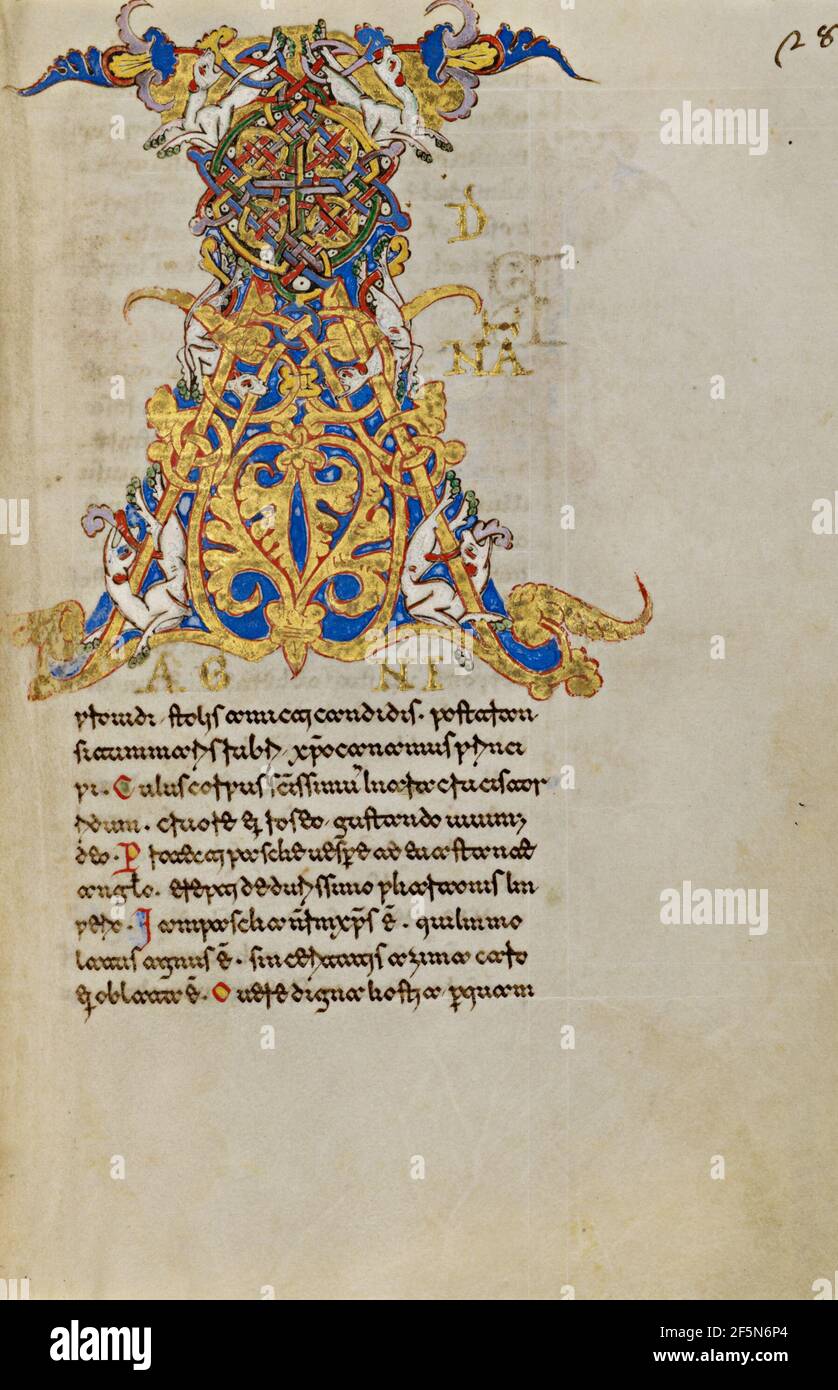 28
D
NA
A G NI
prouidi stolis amicti candidis. post tran
situm maris rubri, xpo canamus princi
pi. Cuius corpus scissimu in ara crucis tor
ridum. cruore ei roseo, gustando uiuim
deo. Protecti pasche uespere
anglo. erepti de durissimo pharaonis im
perio. Iam pascha nrm xps ē. qui immo
latus agnus ē. sinceritatis azima caro
ei oblata ē. O uere digna hostia p quam
alamy
www.alamy.com
Image ID: 2F5N6P4